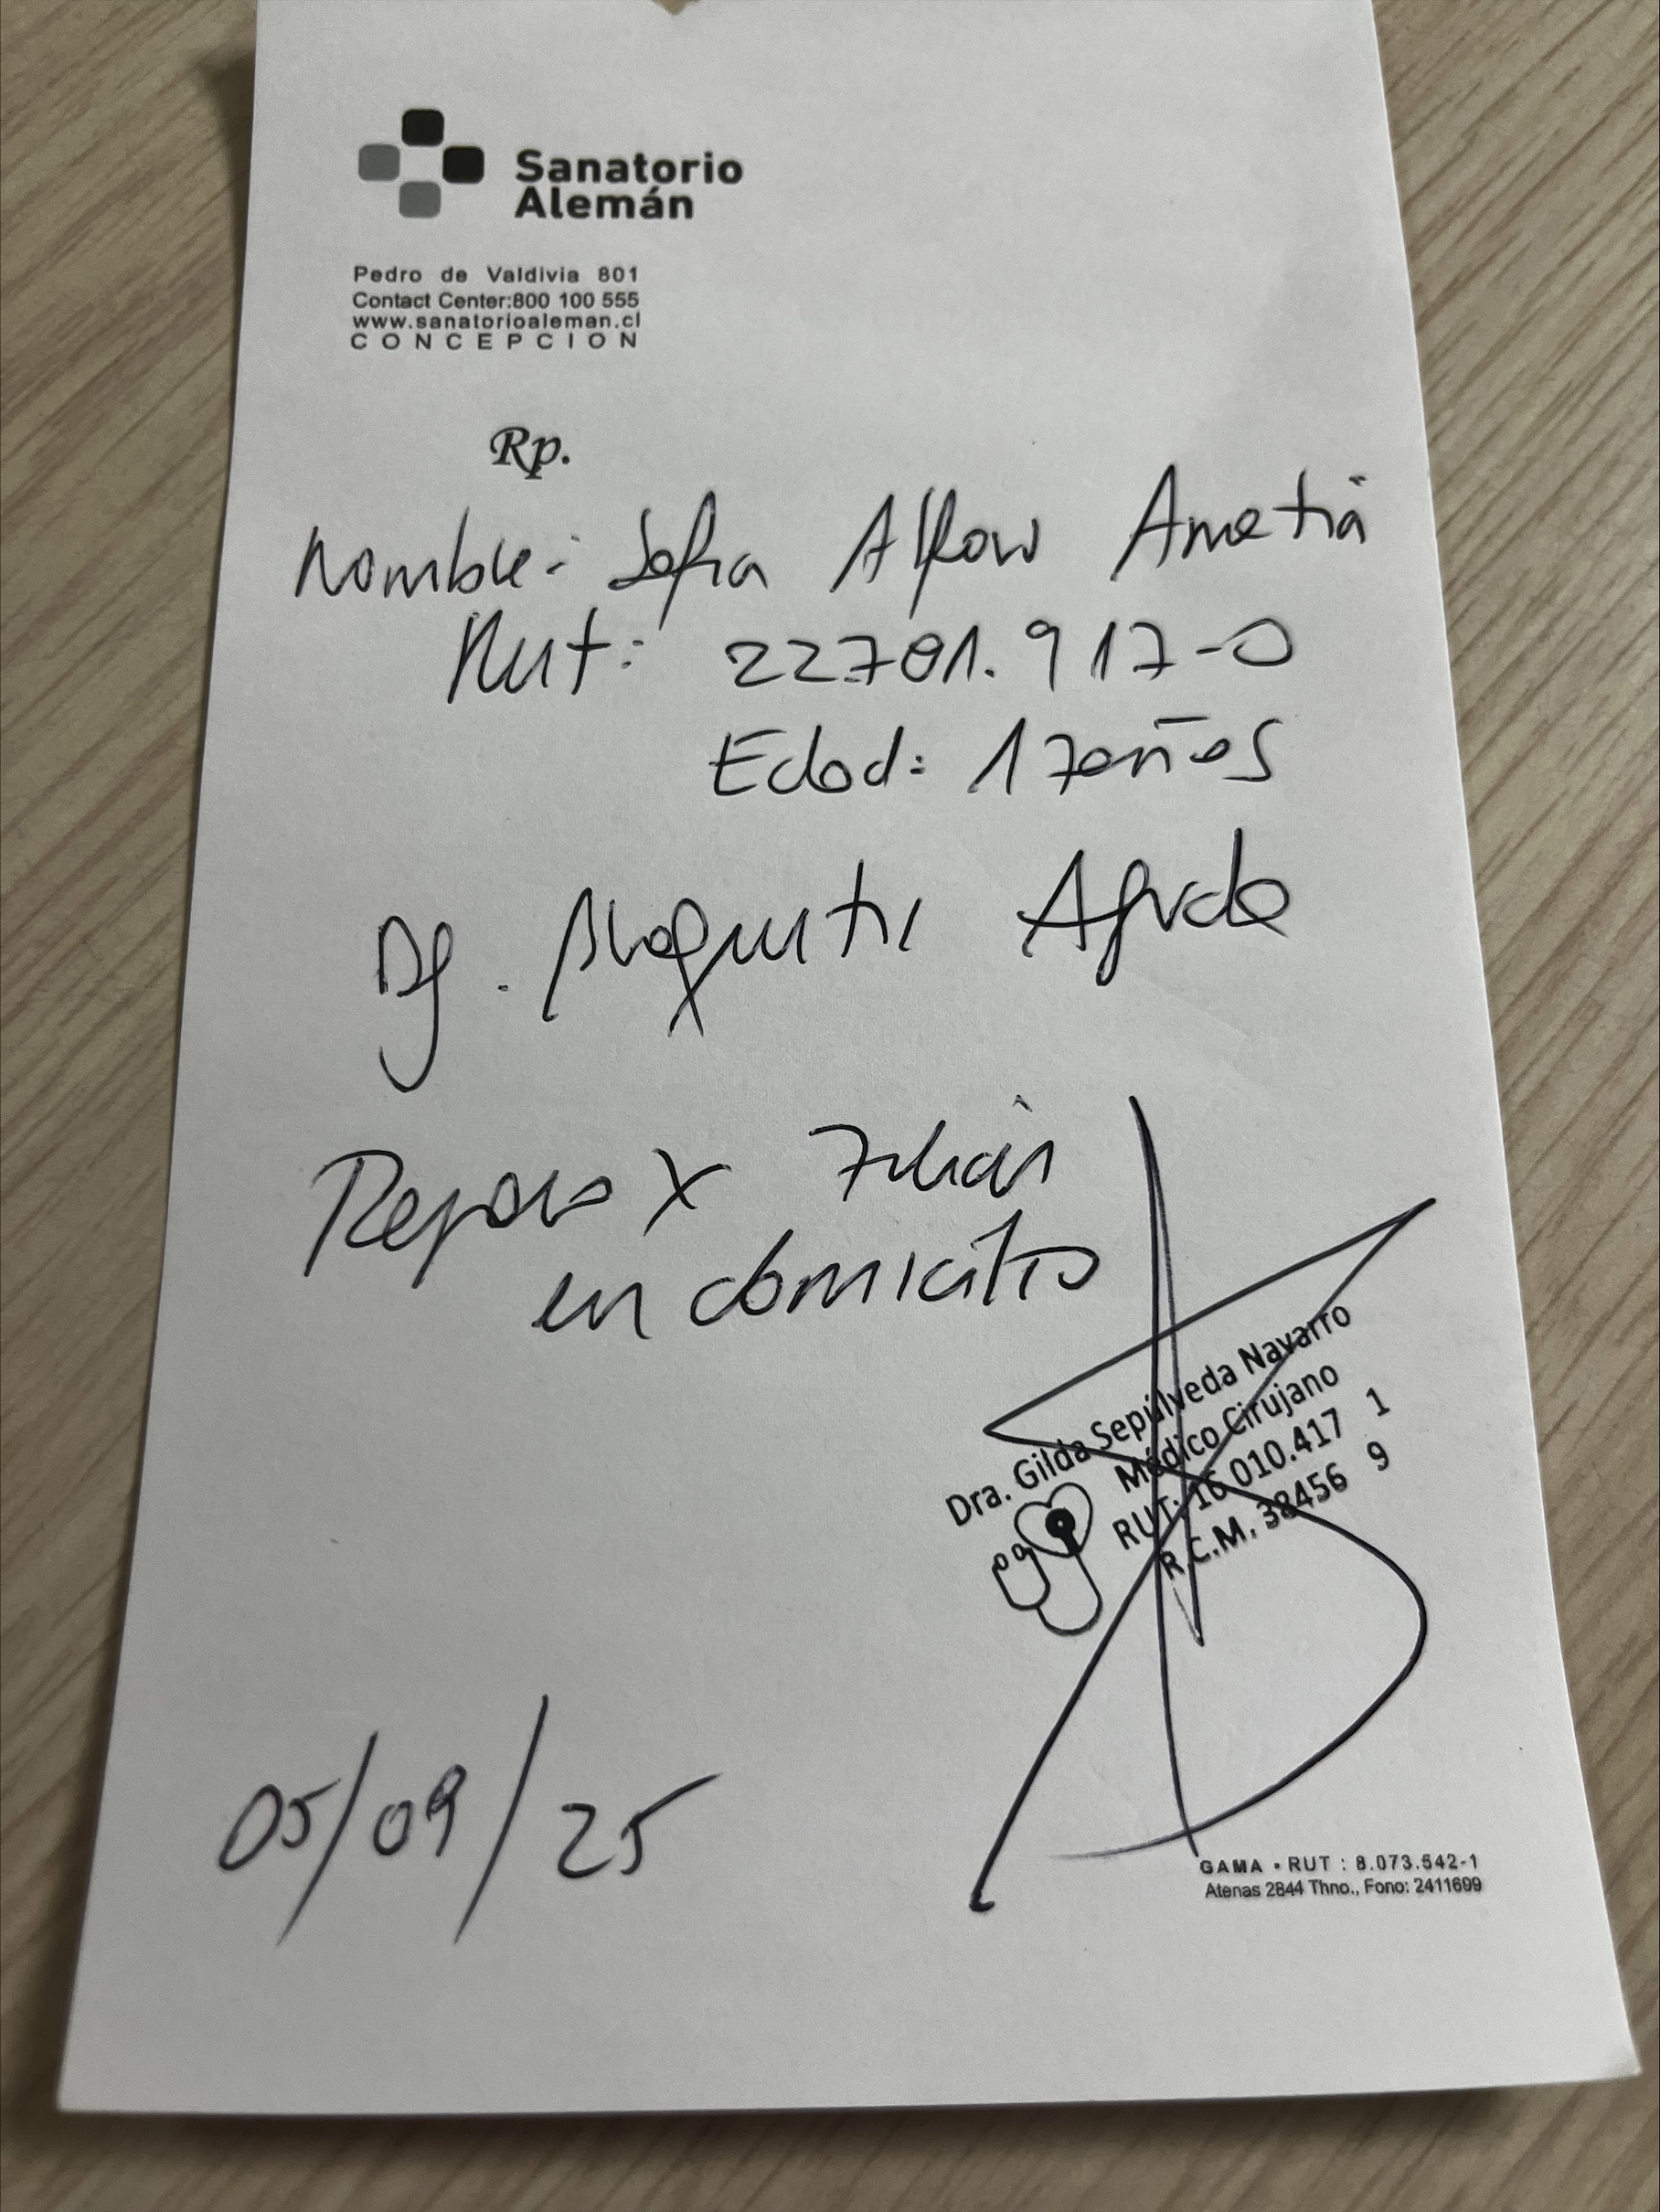 Sanatorio
Alemán
Pedro de Valdivia 801
Contact Center:800 100 555
www.sanatorioaleman.cl
CONCEPCION
Rp.
Nombre: Sofia Alfaro
Rut: 22701.917-0
Edad: 17años
Dg. Aguda
Reposo x 7 días
en domicilio
Dra. Gilda Sepúlveda Navarro
Médico Cirujano
RUT: 16 010.417 1
R.C.M. 38456 9
05/09/25
GAMA - RUT : 8.073.542-1
Atenas 2844 Thno., Fono: 2411699